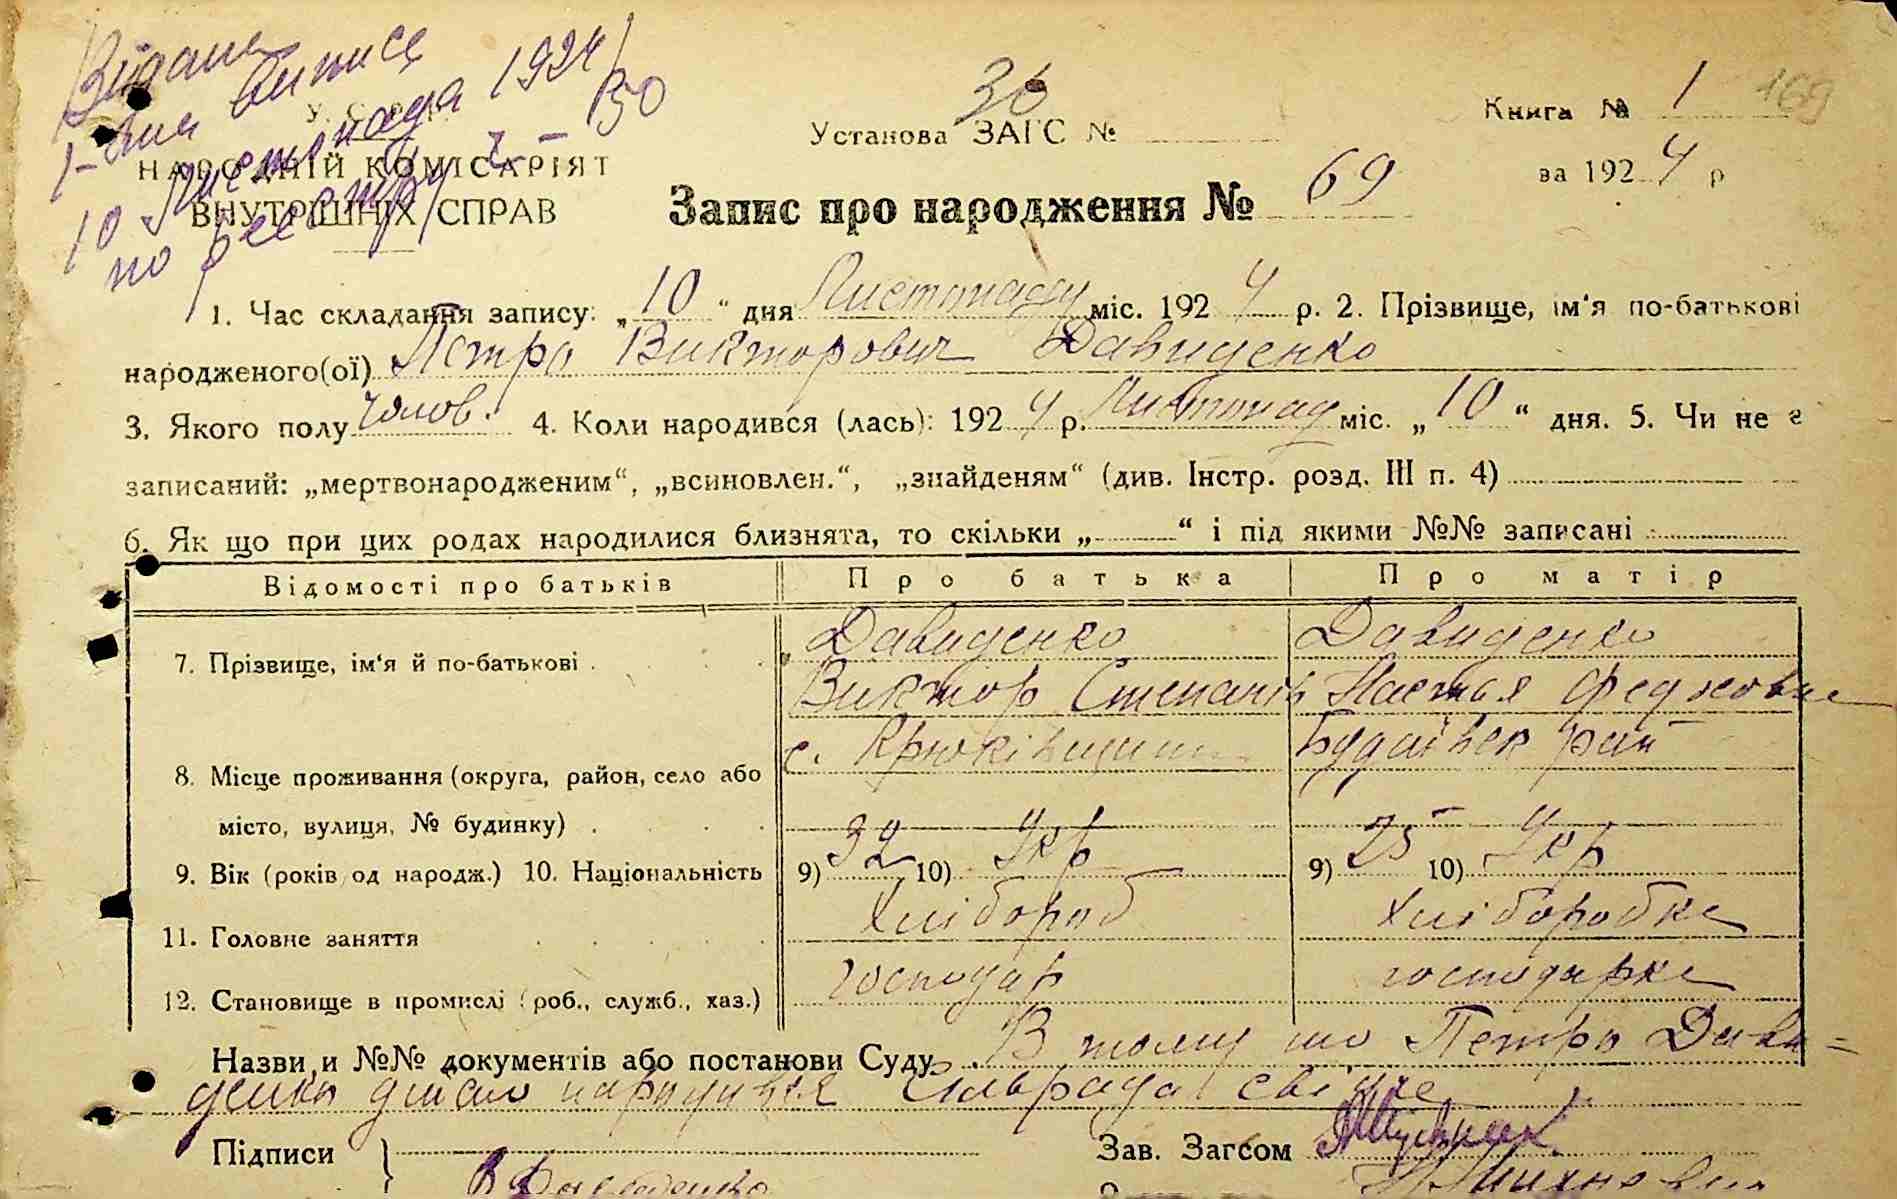 Видана
1-ша випись
10 Листопада 1924
по реєстру 150
У. С. Р. Р.
НАРОДНІЙ КОМІСАРІЯТ
ВНУТРІШНІХ СПРАВ
36
Установа ЗАГС №
Книга № 1
169
за 1924 р
Запис про народження № 69
1. Час складання запису: „10“ дня Листопаду міс. 1924 р. 2. Прізвище, ім'я по-батькові
народженого(ої) Петро Викторович Давиденко
3. Якого полу чолов. 4. Коли народився (лась): 1924 р. Листопад міс. „10“ дня. 5. Чи не є
записаний: „мертвонародженим“, „всиновлен.“, „знайденям“ (див. Інстр. розд. III п. 4)
6. Як що при цих родах народилися близнята, то скільки „ “ і під якими №№ записані
Відомості про батьків Про батька Про матір
7. Прізвище, ім'я й по-батькові
Давиденко Давиденко
Виктор Степанів Настья
8. Місце проживання (округа, район, село або
місто, вулиця, № будинку)
с. Крюківщина Будаївск рай
9. Вік (років од народж.) 10. Національність 9) 32 10) Укр 9) 25 10) Укр
11. Головне заняття Хлібороб Хліборобка
12. Становище в промислі (роб., служб., хаз.) господар господарка
Назви и №№ документів або постанови Суду. В тому що Петро Дави=
денко дійсно народився Сільрада свідче
Підписи } Зав. Загсом